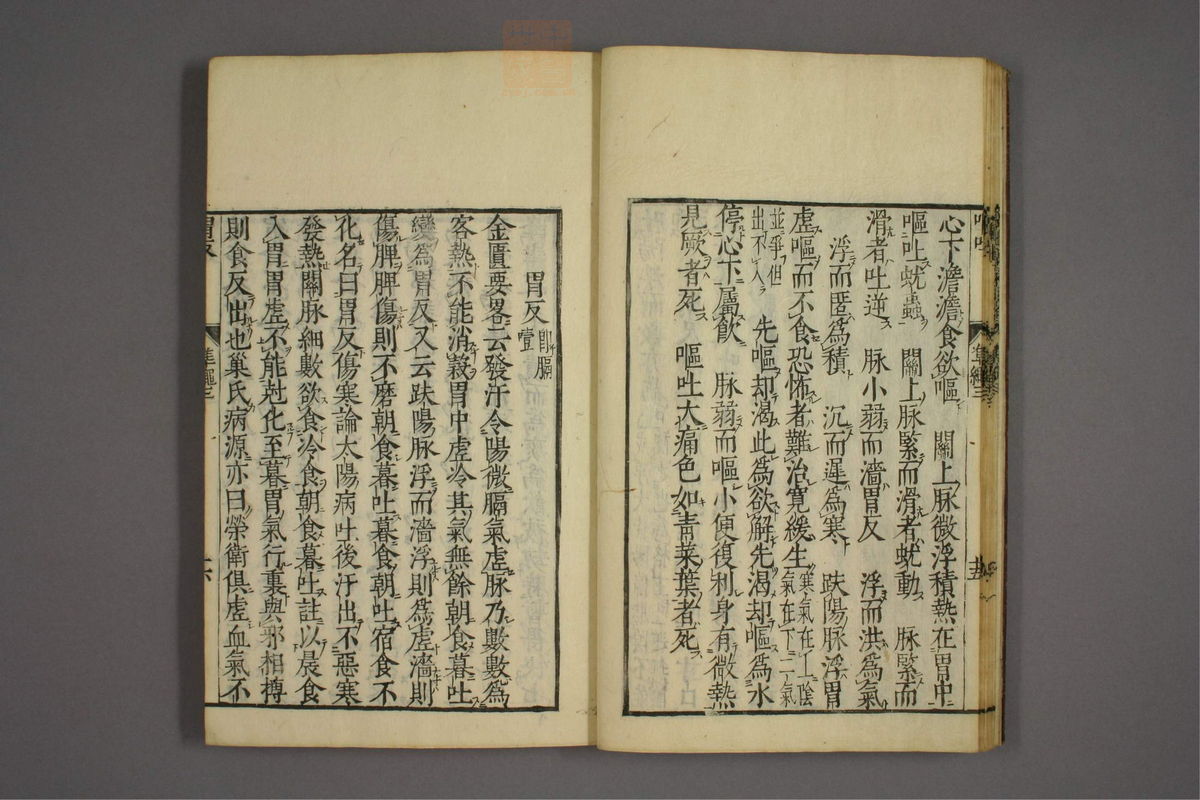 心下澹澹食欲嘔　關上脉微浮積熱在胃中
嘔吐蚘蟲　關上脉緊而滑者蚘動　脉緊而
滑者吐逆　脉小弱而濇胃反　浮而洪爲氣
浮而匿爲積　沉而遲爲寒　趺陽脉浮胃
虛嘔而不食恐怖者難治寛緩生寒氣在上陰氣在下二氣
並爭但出不入　先嘔却渴此爲欲解先渴却嘔爲水
停心下屬飲　脉弱而嘔小便復利身有微熱
見厥者死　嘔吐大痛色如青菜葉者死
胃反即膈噎
金匱要畧云發汗令陽微膈氣虛脉乃數數爲
客熱不能消穀胃中虛冷其氣無餘朝食暮吐
變爲胃反又云趺陽脉浮而濇浮則爲虛濇則
傷脾脾傷則不磨朝食暮吐暮食朝吐宿食不
化名曰胃反傷寒論太陽病吐後汗出不惡寒
發熱關脉細數欲食冷食朝食暮吐註以晨食
入胃胃虛不能尅化至暮胃氣行裏與邪相搏
則食反出也巢氏病源亦曰榮衛俱虛血氣不